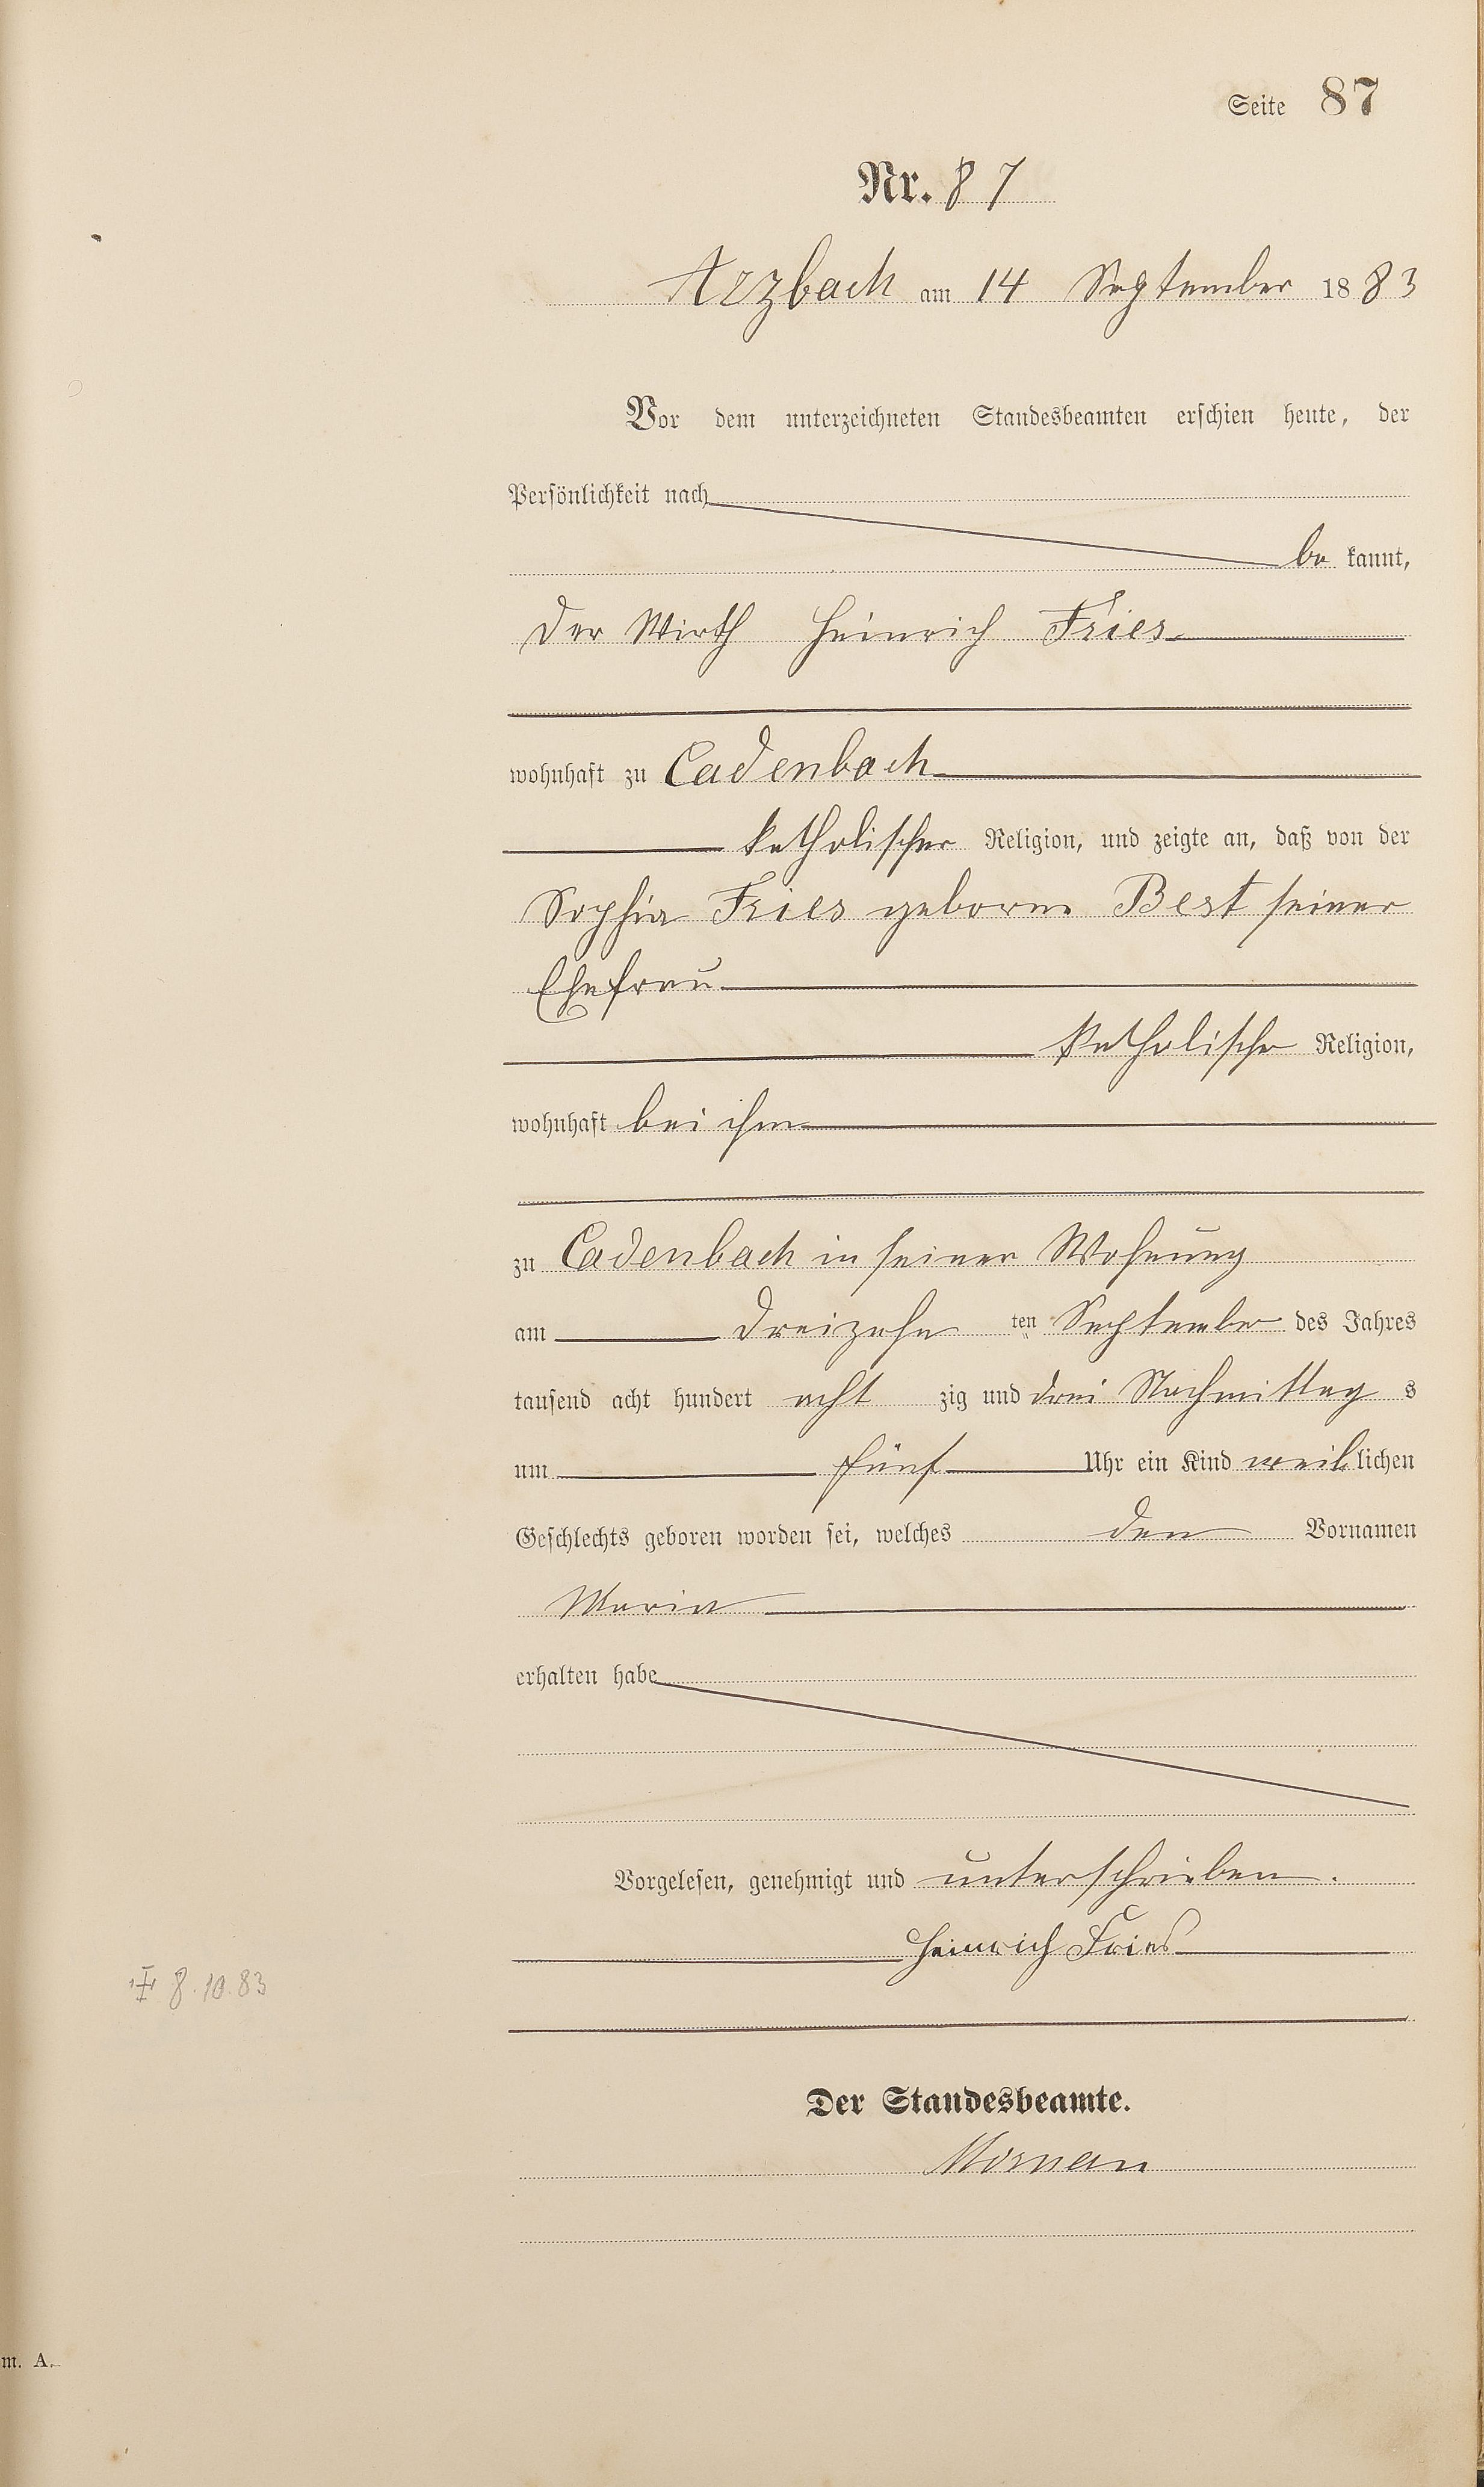 Seite 87
Nr. 87
Arzbach am 14 September 1883
Vor dem unterzeichneten Standesbeamten erschien heute, der
Persönlichkeit nach
be kannt,
der Wirth Heinrich Fries
wohnhaft zu Cadenbach
katholischer Religion, und zeigte an, daß von der
Sophia Fries geborne Best seiner
Ehefrau
katholischer Religion,
wohnhaft bei ihm
zu Cadenbach in seiner Wohnung
am dreizehn ten September des Jahres
tausend acht hundert acht zig und drei Nachmittag s
um fünf Uhr ein Kind weiblichen
Geschlechts geboren worden sei, welches den Vornamen
Maria
erhalten habe
Vorgelesen, genehmigt und unterschrieben.
Heinrich Fries
‡ 8.10.83
Der Standesbeamte.
m. A.